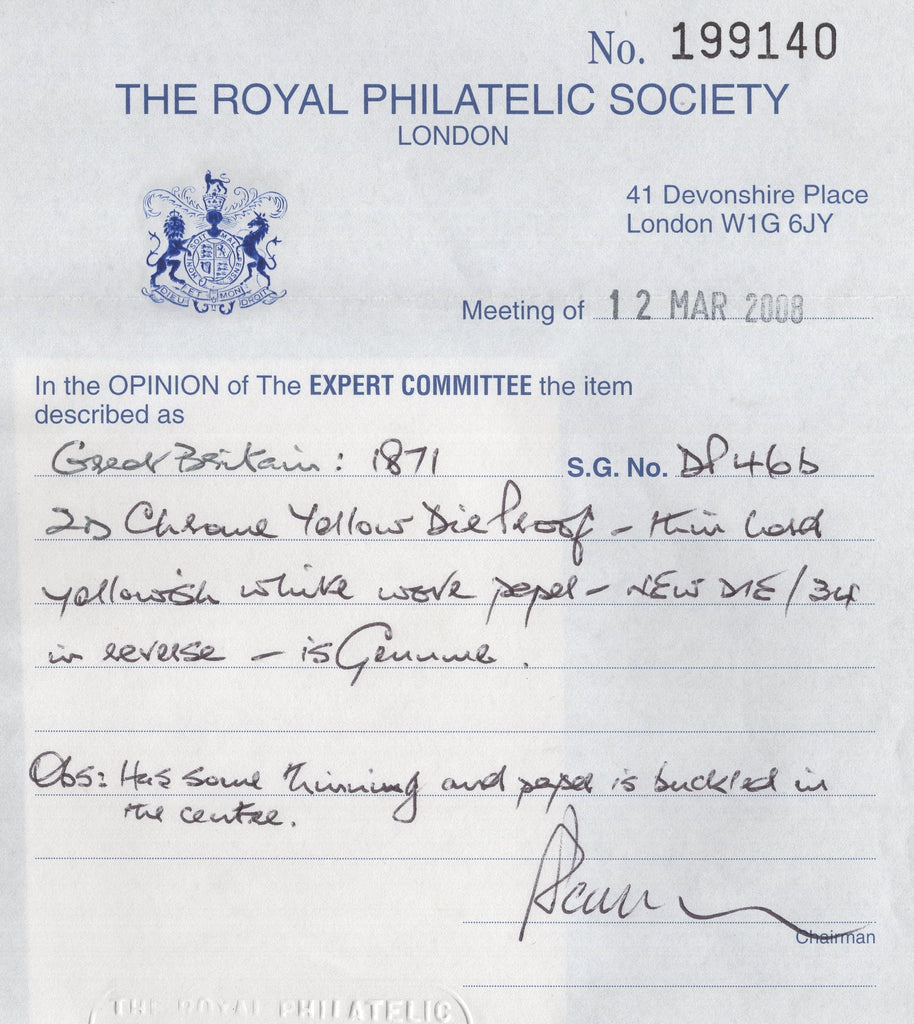 No. 199140
THE ROYAL PHILATELIC SOCIETY
LONDON
41 Devonshire Place
London W1G 6JY
SOIT MAL
HONI PENSE
DIEU ET MON DROIT
Meeting of 12 MAR 2008
In the OPINION of The EXPERT COMMITTEE the item
described as
Great Britain: 1871 S.G. No. DP46b
2D Chrome Yellow Die Proof - thin hard
yellowish white wove paper - NEW DIE/34
in reverse - is Genuine.
Obs: Has some thinning and paper is buckled in
the centre.
Chairman
THE ROYAL PHILATELIC